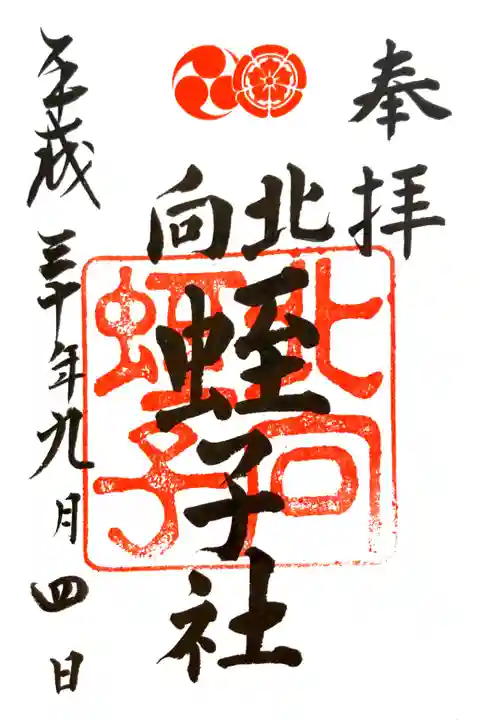 奉拝
北向
蛭子社
北向
蛭子
平成三十年九月四日